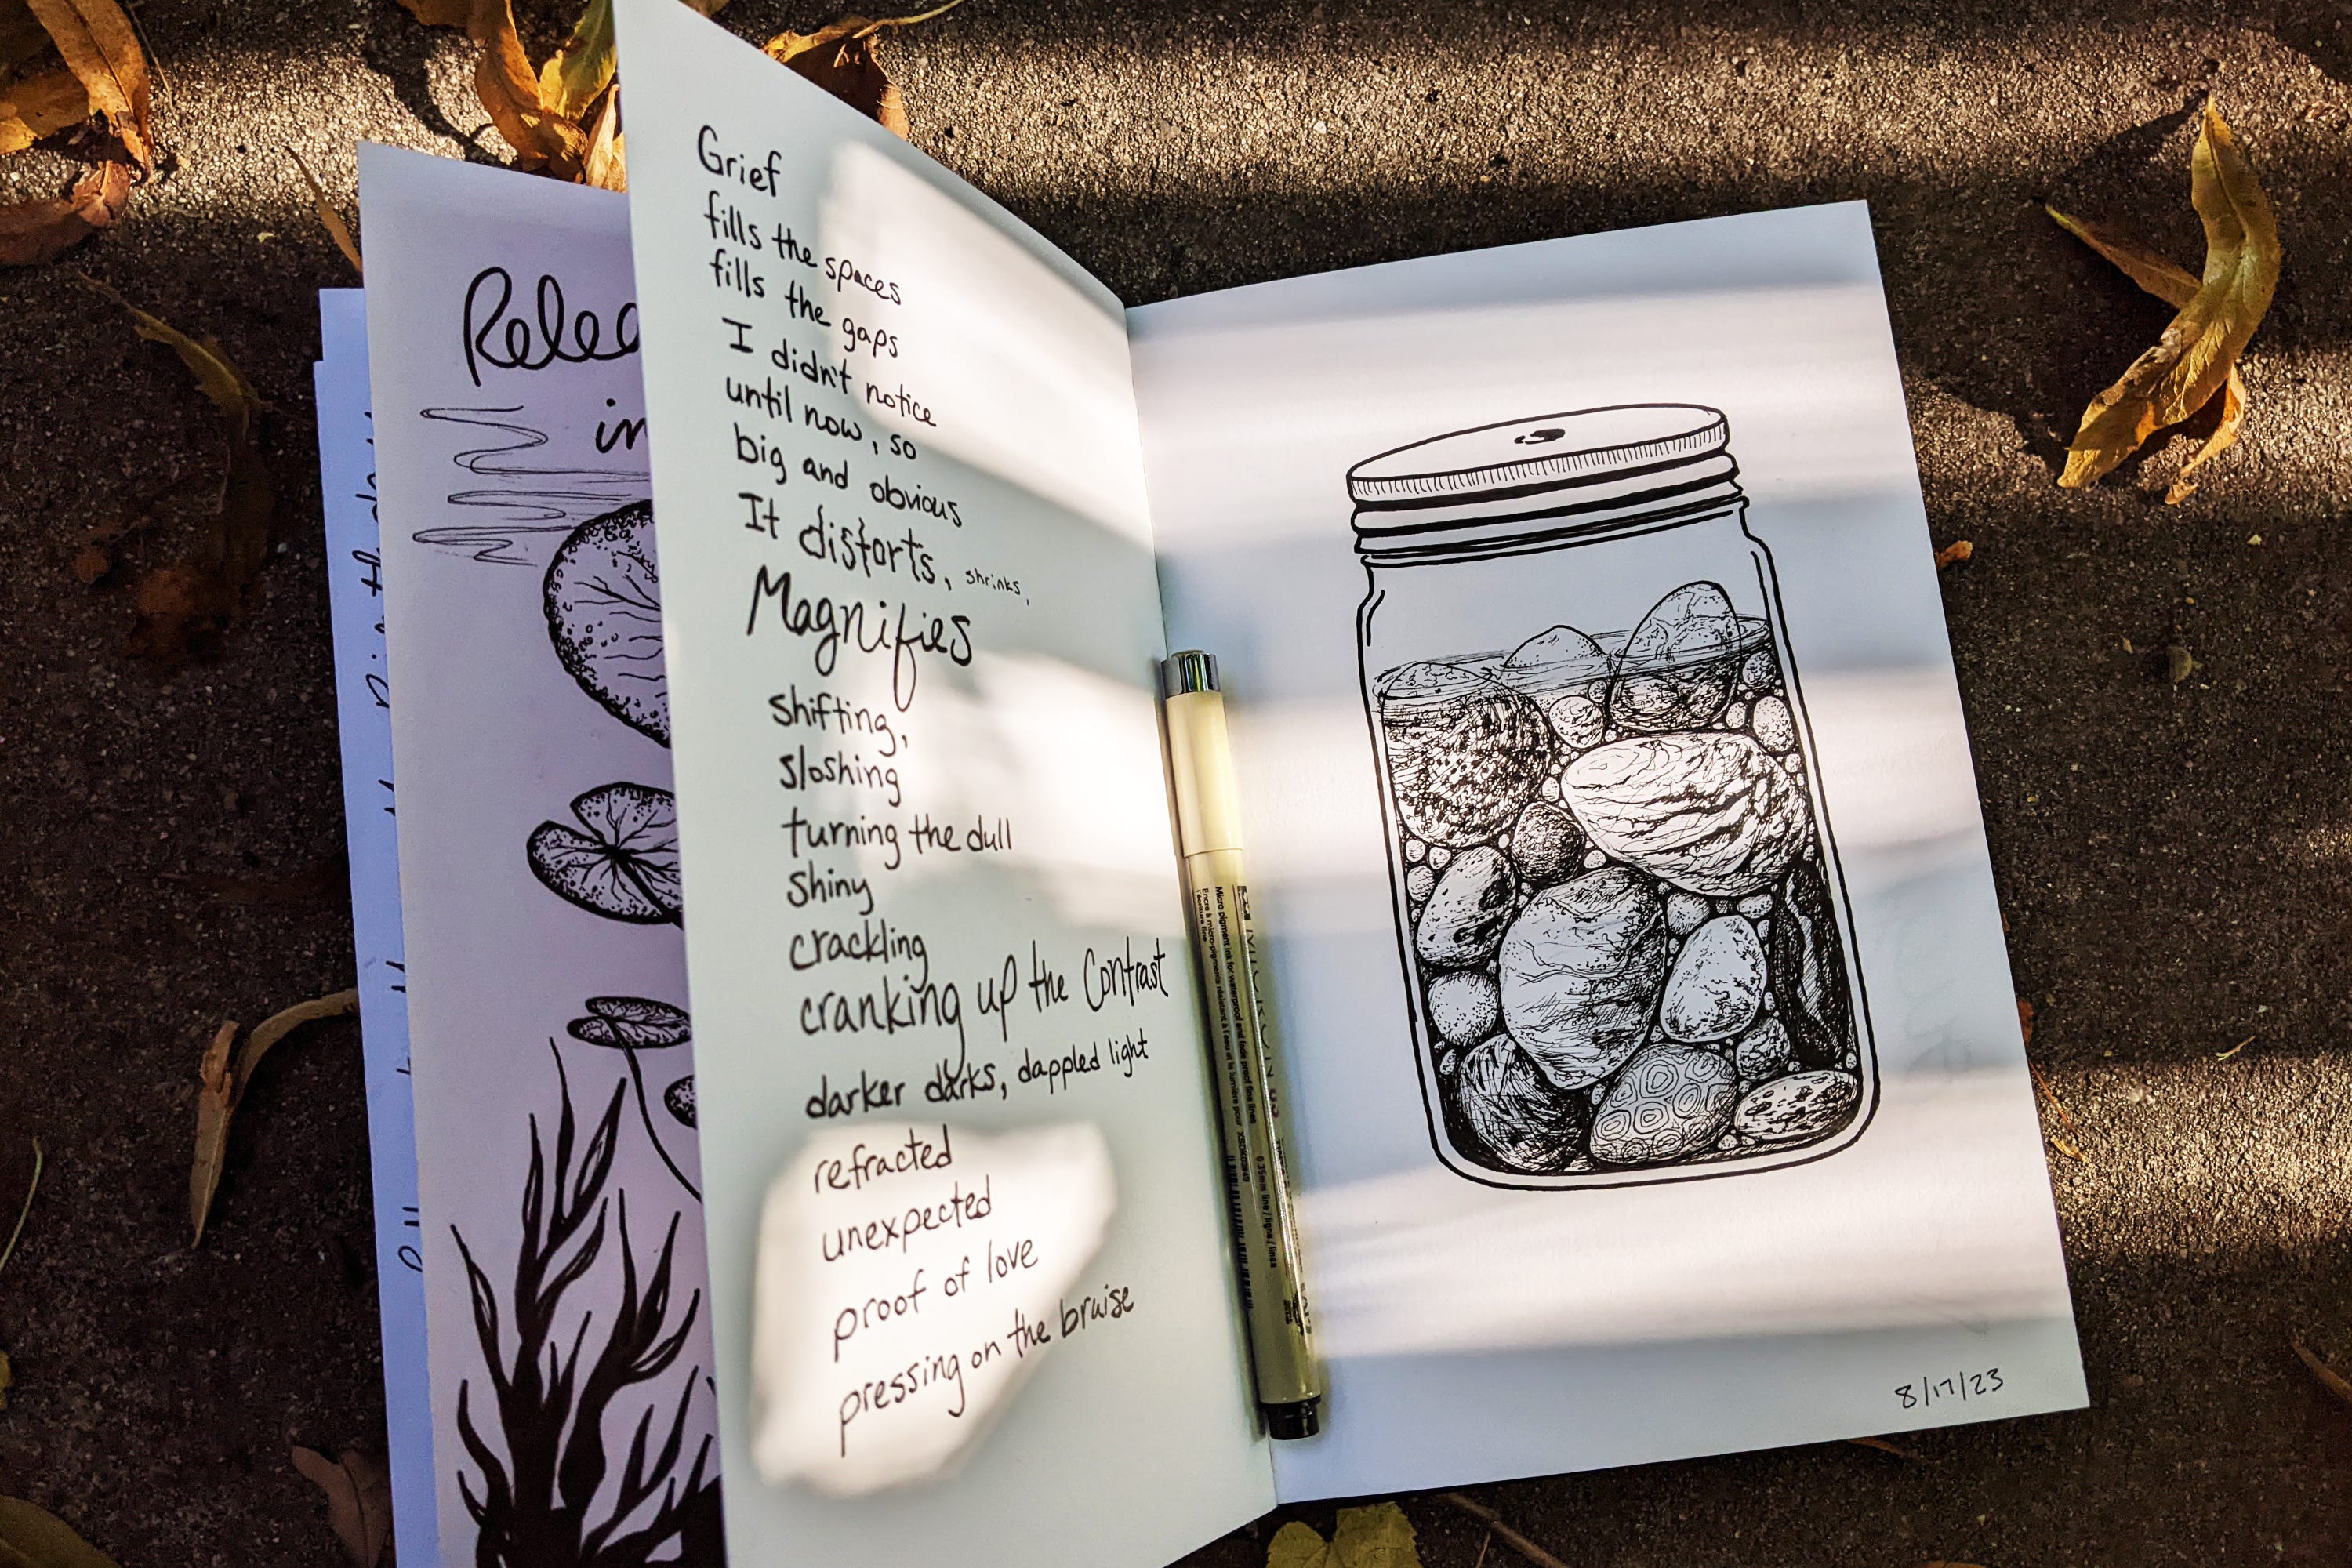 Grief
fills the spaces
fills the gaps
I didn't notice
until now, so
big and obvious
It distorts, shrinks,
Magnifies
shifting,
sloshing
turning the dull
shiny
crackling
cranking up the contrast
darker darks, dappled light
refracted
unexpected
proof of love
pressing on the bruise
8/17/23
Relea
in
Micro pigment ink for waterproof and fade proof fine lines
Encre à micro-pigments résistant à l'eau et la lumière pour
l'écriture fine
0.35mm line / ligne / línea